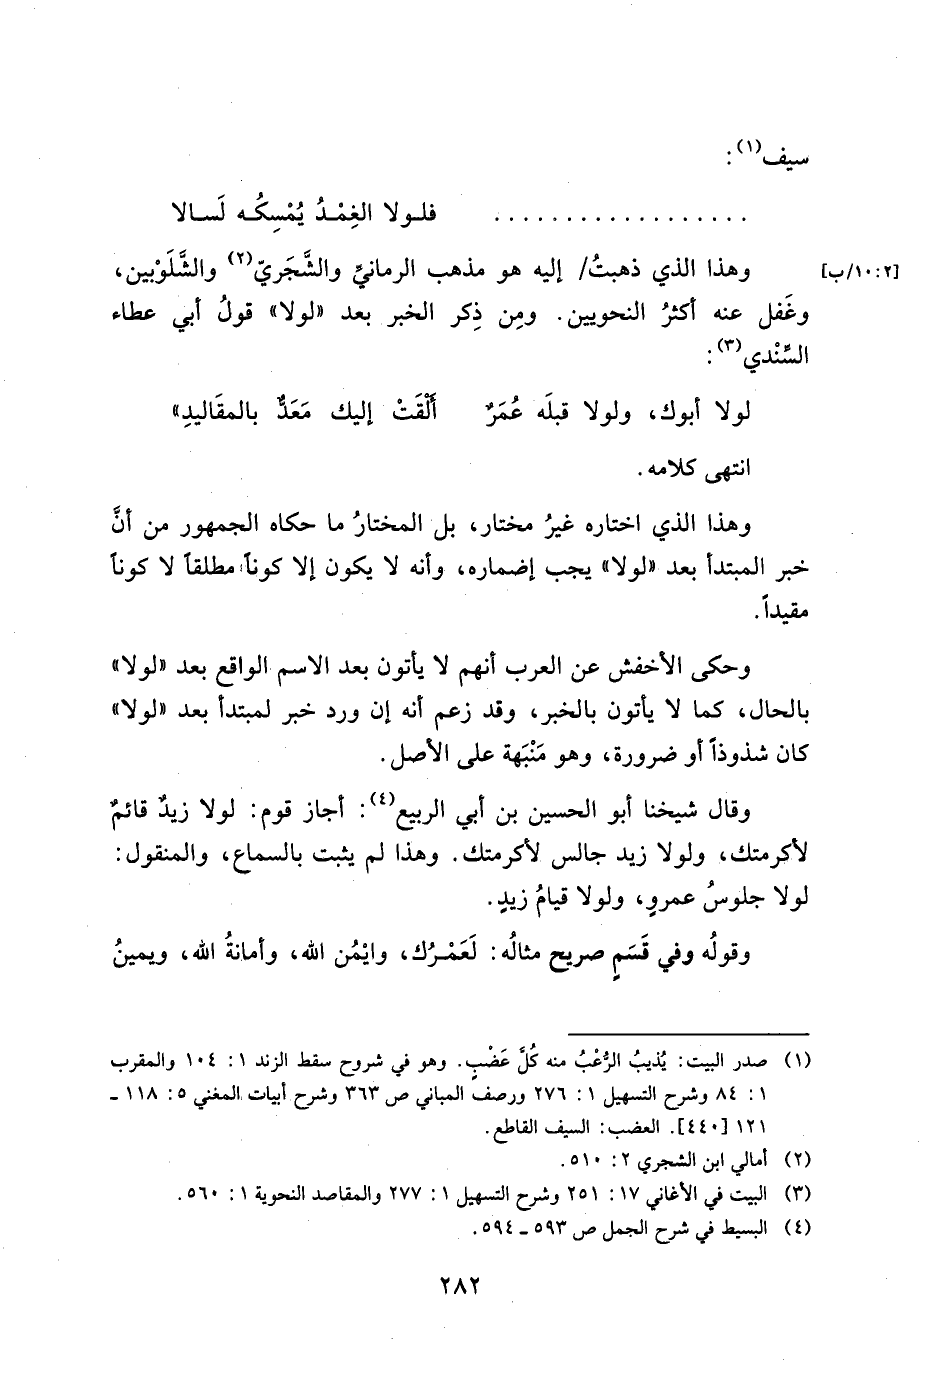 سيف(١):
. . . . . . . . . . . . . . . . . . فلـولا الغِمْـدُ يُمْسِكُـه لَسـالا
[٢:١٠/ب] وهذا الذي ذهبتُ/ إليه هو مذهب الرمانيِّ والشَّجَريّ(٢) والشَّلَوْبين،
وغَفل عنه أكثرُ النحويين. ومِن ذِكر الخبر بعد «لولا» قولُ أبي عطاء
السِّنْدي(٣):
لولا أبوك، ولولا قبلَه عُمَرٌ أَلْقَتْ إليك مَعَدٌّ بالمقَاليدِ»
انتهى كلامه.
وهذا الذي اختاره غيرُ مختار، بل المختارُ ما حكاه الجمهور من أنَّ
خبر المبتدأ بعد «لولا» يجب إضماره، وأنه لا يكون إلا كوناً مطلقاً لا كوناً
مقيداً.
وحكى الأخفش عن العرب أنهم لا يأتون بعد الاسم الواقع بعد «لولا»
بالحال، كما لا يأتون بالخبر، وقد زعم أنه إن ورد خبر لمبتدأ بعد «لولا»
كان شذوذاً أو ضرورة، وهو مَنْبَهة على الأصل.
وقال شيخنا أبو الحسين بن أبي الربيع(٤): أجاز قوم: لولا زيدٌ قائمٌ
لأكرمتك، ولولا زيد جالس لأكرمتك. وهذا لم يثبت بالسماع، والمنقول:
لولا جلوسُ عمروٍ، ولولا قيامُ زيدٍ.
وقولُه وفي قَسَمٍ صريح مثالُه: لَعَمْـرُك، وايْمُن الله، وأمانةُ الله، ويمينُ
(١) صدر البيت: يُذيبُ الرُّعْبُ منه كُلَّ عَضْبٍ. وهو في شروح سقط الزند ١: ١٠٤ والمقرب
١: ٨٤ وشرح التسهيل ١: ٢٧٦ ورصف المباني ص ٣٦٣ وشرح أبيات المغني ٥: ١١٨ ـ
١٢١ [٤٤٠]. العضب: السيف القاطع.
(٢) أمالي ابن الشجري ٢: ٥١٠.
(٣) البيت في الأغاني ١٧: ٢٥١ وشرح التسهيل ١: ٢٧٧ والمقاصد النحوية ١: ٥٦٠.
(٤) البسيط في شرح الجمل ص ٥٩٣ ـ ٥٩٤.
٢٨٢